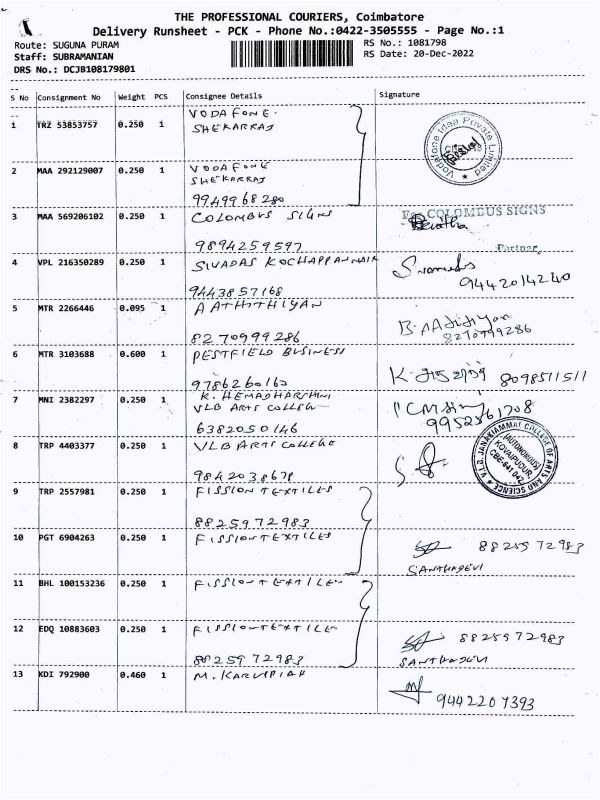 THE PROFESSIONAL COURIERS, Coimbatore
Delivery Runsheet - PCK - Phone No.:0422-3505555 - Page No.:1
Route: SUGUNA PURAM
RS No.: 1081798
Staff: SUBRAMANIAN
RS Date: 20-Dec-2022
DRS No.: DCJB108179801
S No Consignment No Weight PCS Consignee Details Signature
VODAFONE.
1 TRZ 53853757 0.250 1 SHEKARRAJ
Vodafone Idea Private Limited
2 MAA 292129007 0.250 1 VODAFONE
SHEKARRAJ
9949968280
3 MAA 569206102 0.250 1 COLOMBUS SIGNS
For COLOMDUS SIGNS
9894259597
Partner
4 VPL 216350289 0.250 1 SIVADAS KOCHAPPANNAIR
9442014240
9443857168
5 MTR 2266446 0.095 1 AATHITHIYAN
8270999286
8270999286
6 MTR 3103688 0.600 1 PESTFIELD BUSINESS
8098511511
9786260160
7 MNI 2382297 0.250 1 K. HEMADHARSHNI
VLB ARTS COLLEGE
9952561708
6382050146
8 TRP 4403377 0.250 1 VLB ARTS COLLEGE
V.L.B. JANAKIAMMAL COLLEGE OF ARTS AND SCIENCE
(AUTONOMOUS)
KOVAIPUDUR,
CBE-641 042
9842038678
9 TRP 2557981 0.250 1 FISSION TEXTILES
8825972983
10 PGT 6904263 0.250 1 FISSION TEXTILES
8825972983
SANTHADEVI
11 BHL 100153236 0.250 1 FISSION TEXTILES
12 EDQ 10883603 0.250 1 FISSION TEXTILE
8825972983
8825972983
SANTHADEVI
13 KDI 792900 0.460 1 M. KARUPPIAH
9442207393